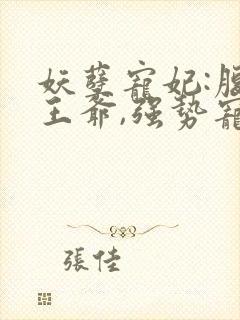 妖孽寵妃:
王爺,強勢寵
張佳